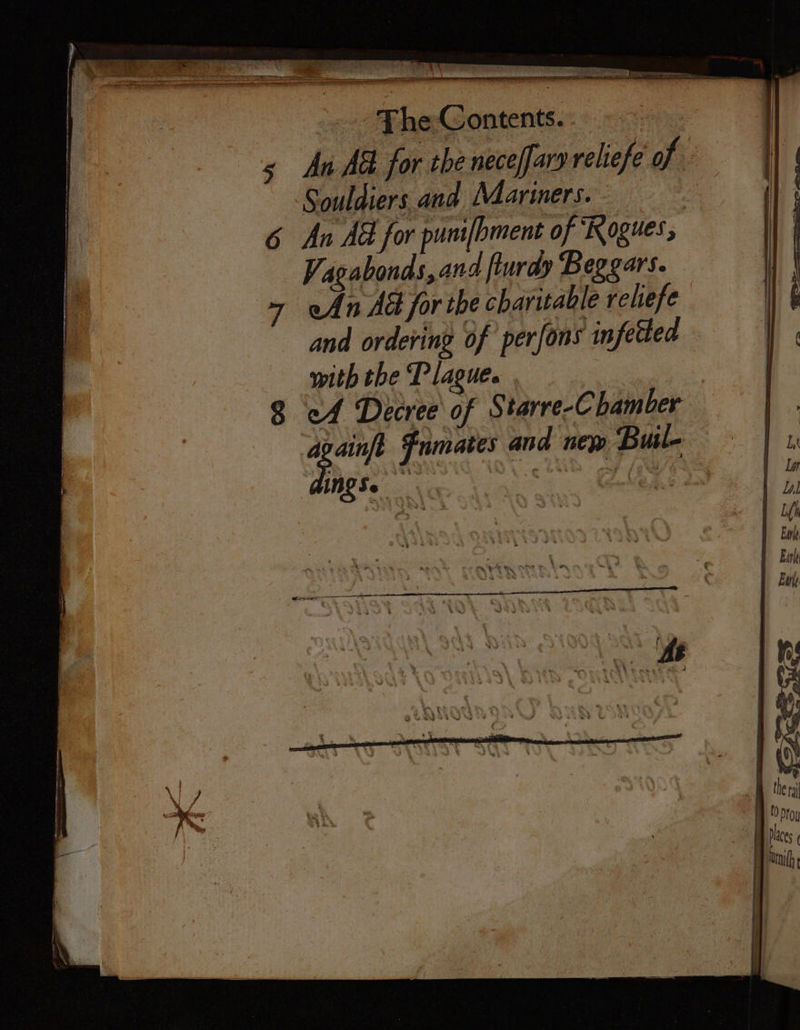 The Contents.
5 An Act for the neceſſary reliefe of
Souldiers and Mariners.
6 An Act for puniſhment of Rogues,
Vagabonds, and ſturdy Beggars.
7 An Act for the charitable reliefe
and ordering of perſons infected
with the Plague.
8 A Decree of Starre-Chamber
againſt Inmates and new Buil-
dings.
As
the
to prou
places